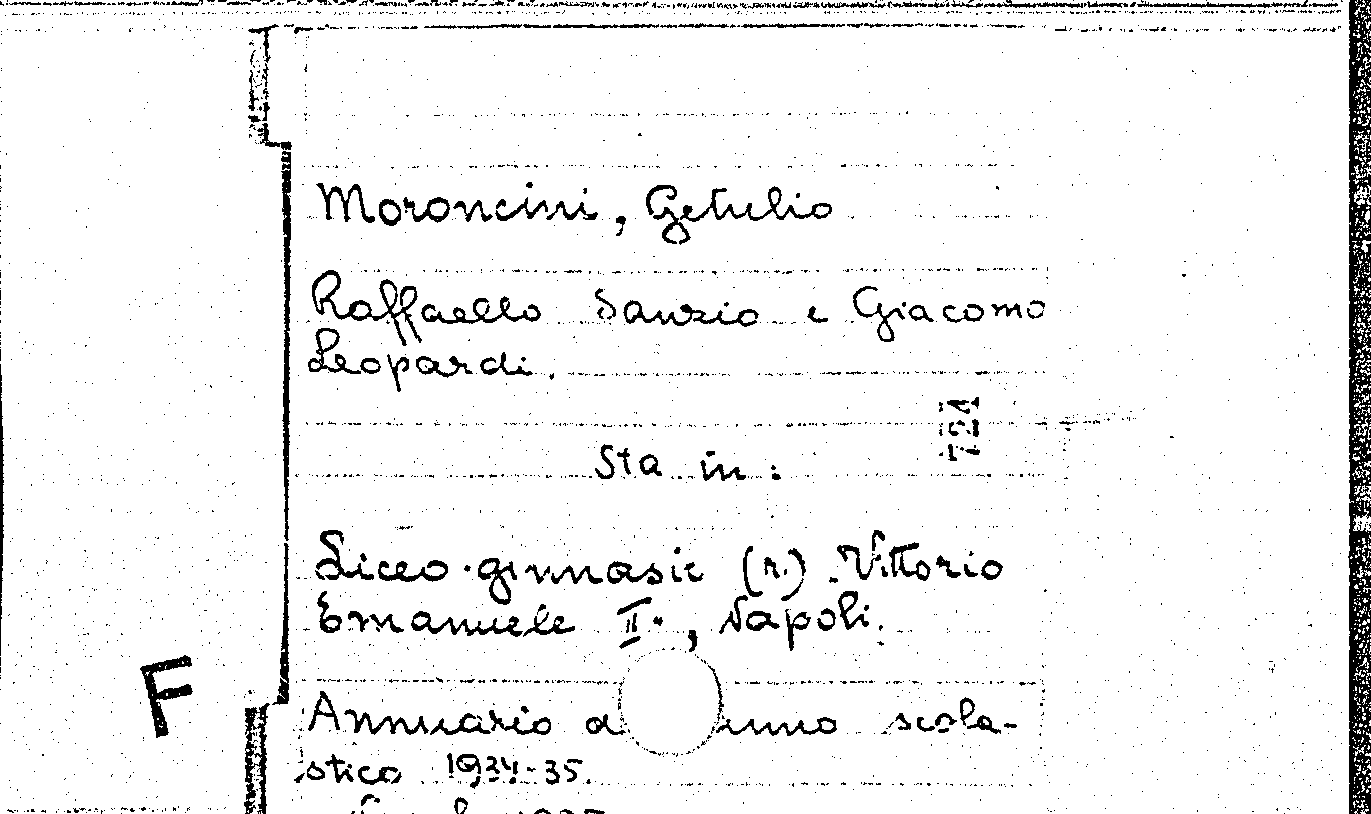 Moroncini, Getulio
Raffaello Sanzio e Giacomo
Leopardi.
724
Sta in:
Liceo-ginnasio (r.) Vittorio
Emanuele II., Napoli.
F
Annuario anno scola-
stico 1934-35.